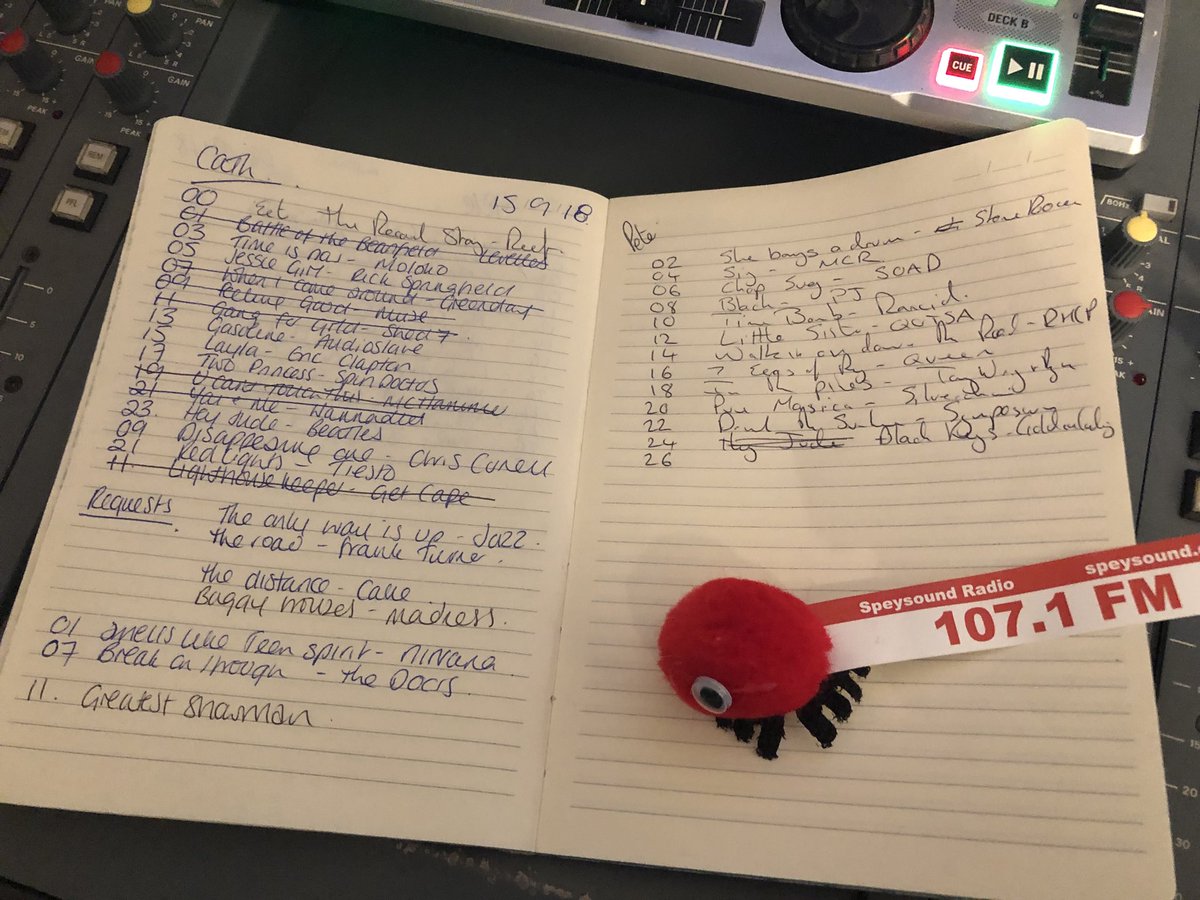 DECK B
CUE
PAN
GAIN
PEAK
GAIN
PEAK
PFL
Cath
15 9 18
00 Eet the Record Stay - Reef
01 Battle of the Beanfield Levellers
03 Time is now - Moloko
05 Jessie Girl - Rick Springfield
07 When I come around - Greenday
09 Feeling Good - Muse
11 Gang to Gild - Shed 7
13 Gasoline - Audioslave
15 Layla - Eric Clapton
17 Two Princess - Spin Doctors
19 U Cant Touch this - MC Hammer
21 You + Me - Wannadies
23. Hey Jude - Beatles
09 Disappearing one - Chris Cornell
21 Red lights - Tiesto
11. Lighthouse keeper - Get Cape
Requests
The only way is up - Jazz.
the road - Frank Turner.
the distance - Cake
Baggy Trousers - Madness.
01 Smells like Teen spirit - Nirvana
07 Break on through - the Doors.
11. Greatest Showman
Pete
02 She bangs a drum - Stone Roses
04 Sing - MCR
06 Chop Suey - SOAD
08 Black - PJ
10 Time Bomb - Rancid.
12 Little Sister - QOTSA
14 Walk in and down the Road - RHCP
16 7 Seas of Rhy - Queen
18 In the Pines -
20 Pure Massacre - Silverchair
22 Drink the Sunshine - Symposium
24 Hey Jude Black Keys -
26
Speysound Radio
speysound.
107.1 FM